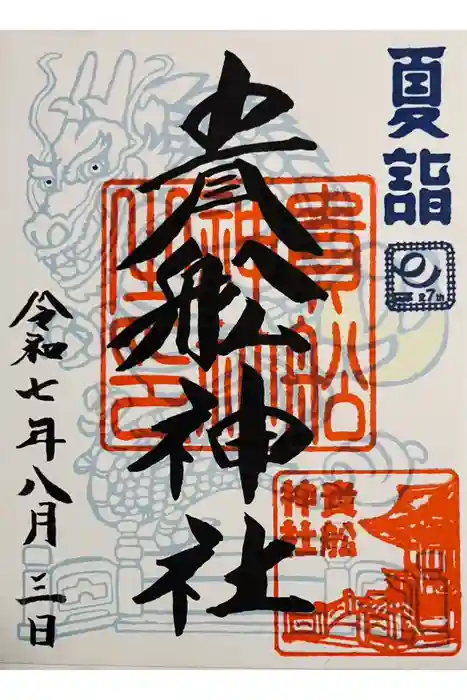 夏詣
貴舩神社
令和七年八月三日
貴船
神社
之印
貴舩
神社